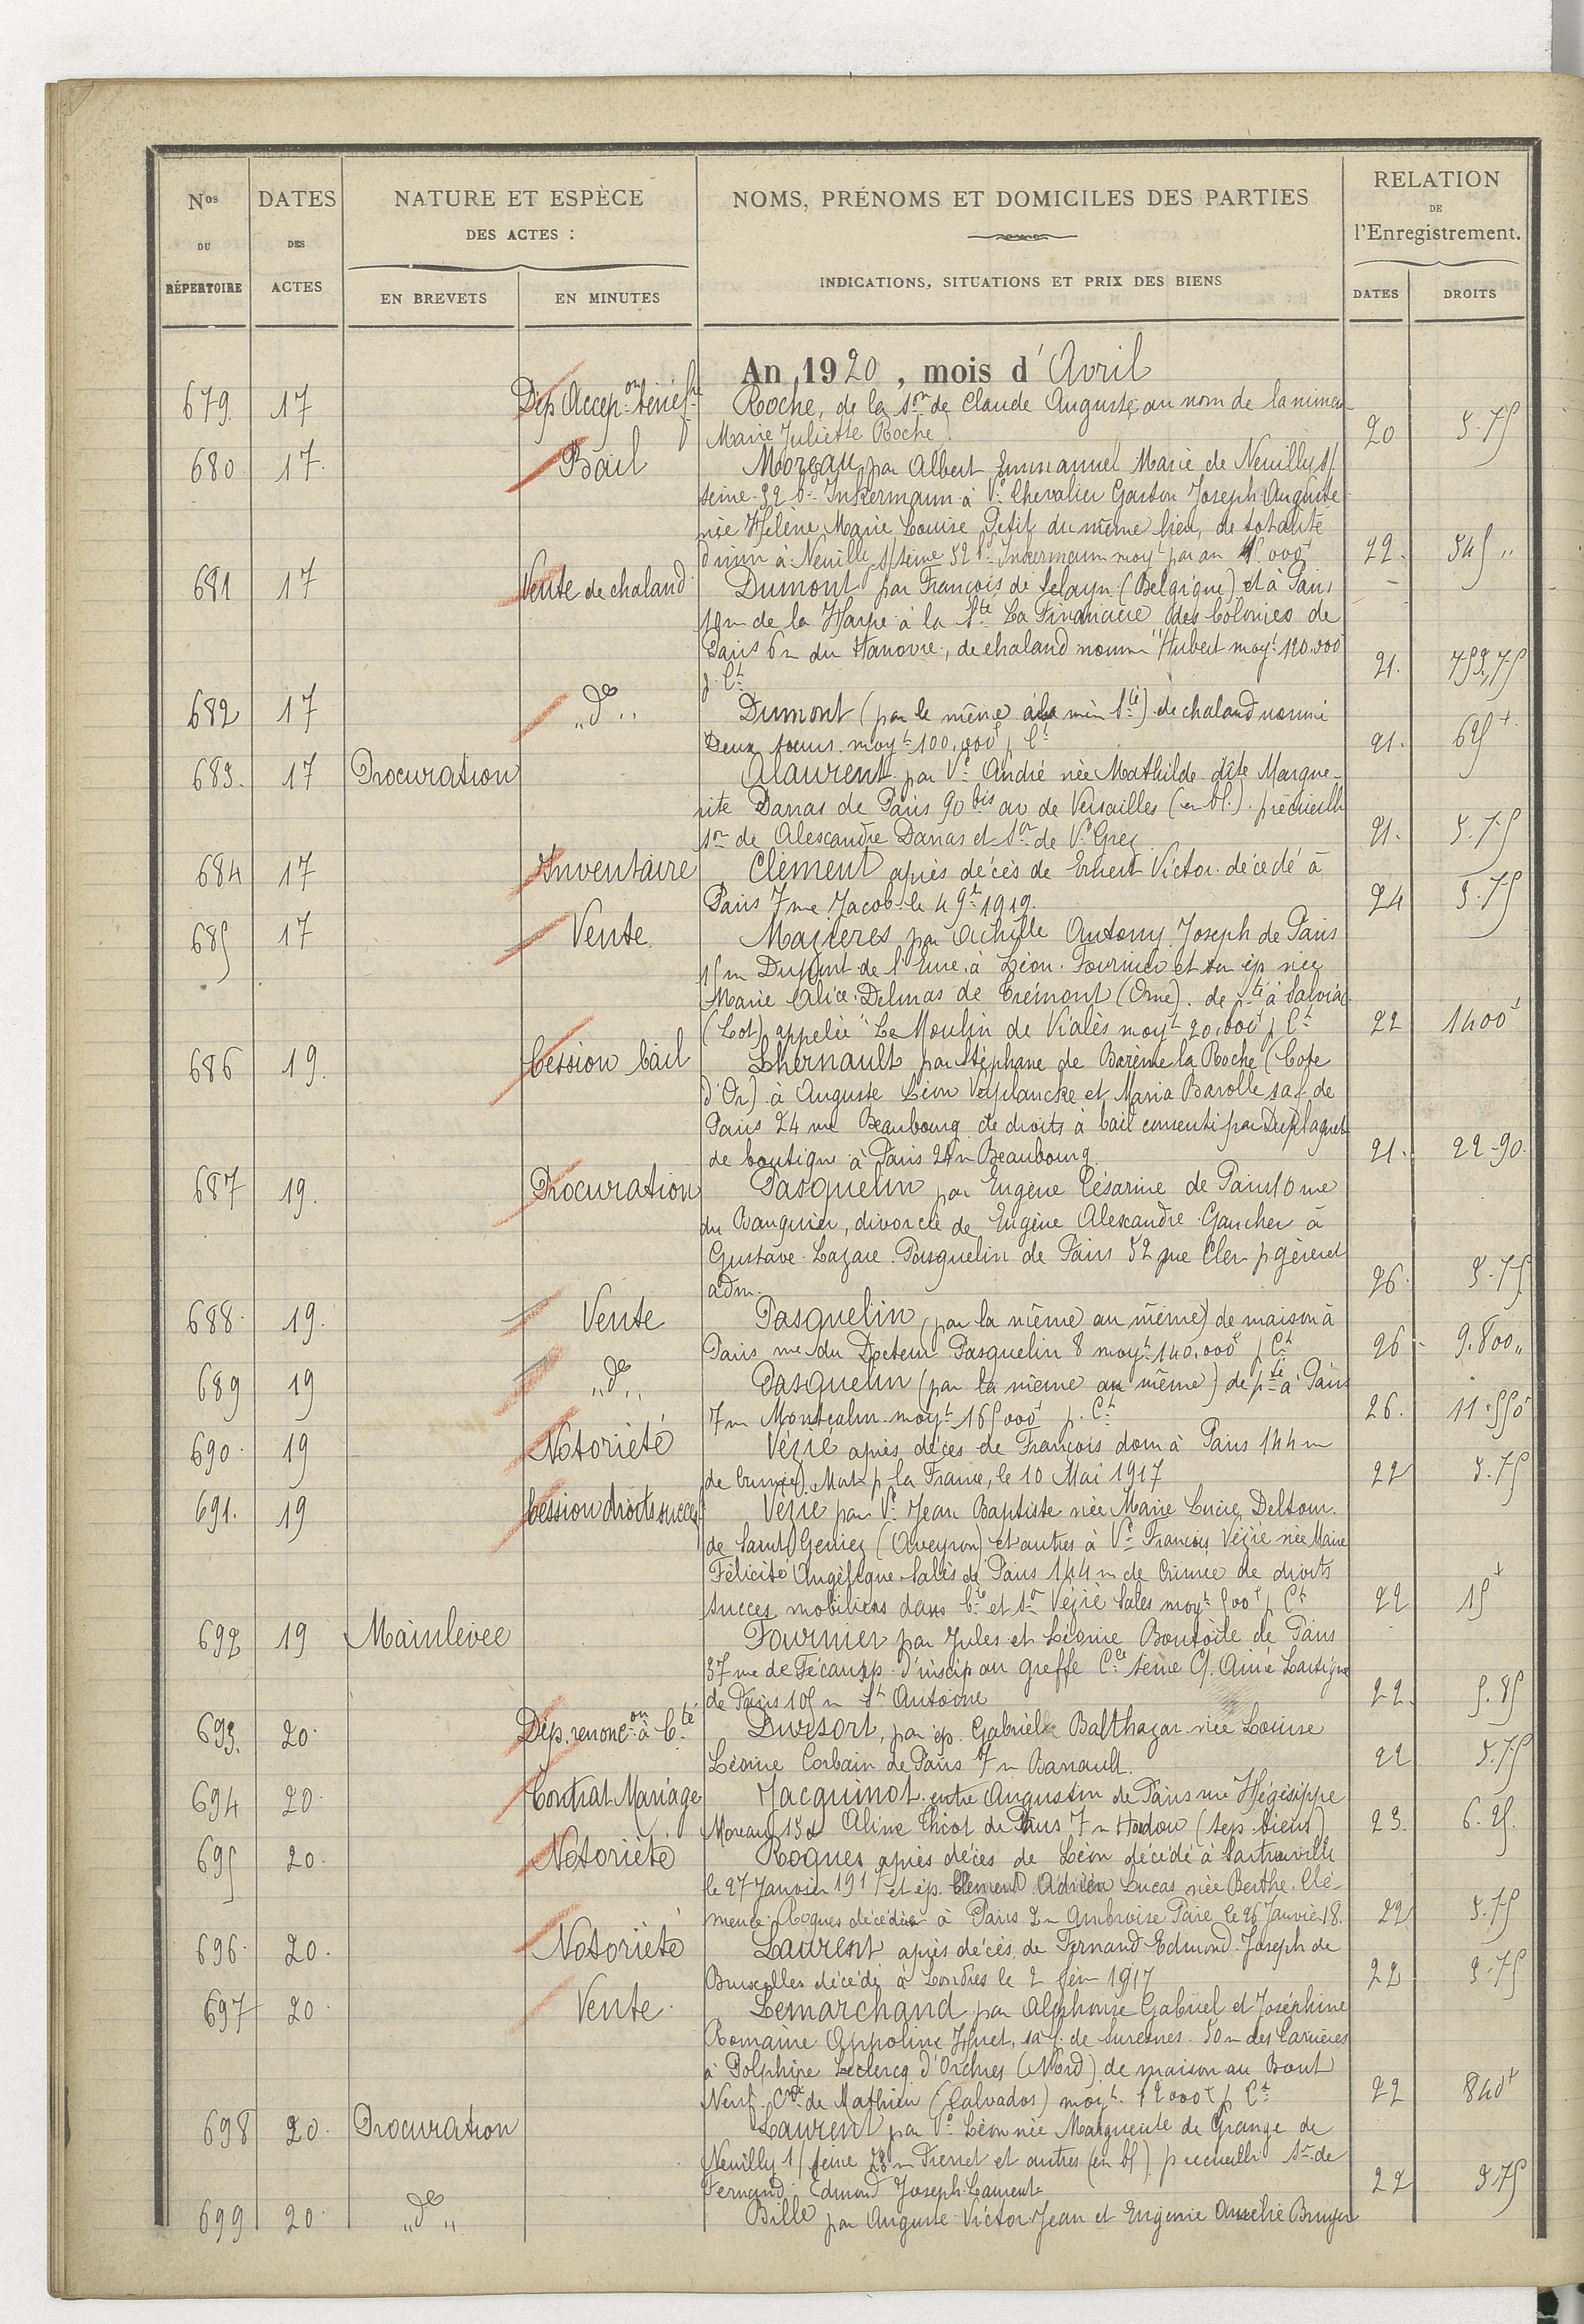 Nos DU RÉPERTOIRE
DATES DES ACTES
NATURE ET ESPÈCE DES ACTES :
EN BREVETS
EN MINUTES
NOMS, PRÉNOMS ET DOMICILES DES PARTIES
INDICATIONS, SITUATIONS ET PRIX DES BIENS
RELATION DE l'Enregistrement.
DATES
DROITS
An 1920, mois d'Avril
679 17 Dép Accepon bénéfre Roche, de la son de Claude Auguste, au nom de la mineure
Marie Juliette Roche 20 5.75
680 17 Bail Moreau par Albert Emmanuel Marie de Neuilly s/
seine 52 bd Inkermann à Ve Chevalier Gaston Joseph Auguste
née Hélène Marie Louise Petit du même lieu, de totalité
d'imm à Neuilly s/seine 52 bd Inkermann moyt par an 000f 22. 545 "
681 17 Vente de chaland Dumont par François de Selayn (Belgique) et à Paris
10 r de la Harpe à la Sté La Financière des Colonies de
Paris 6 r du Hanovre, de chaland nommé "Hubert moyt 120.000f
p. Ct 21. 753,75
682 17 "do" Dumont (par le même à la mêm Sté) de chaland nommé
Deux soeurs moyt 100,000f p Ct 21. 625f
683. 17 Procuration Alaurent par Ve André née Mathilde dite Margue-
rite Danas de Paris 90 bis av de Versailles (en bl.) p recueillir
son de Alexandre Danas et son de Ve Grec 21. 5.75
684 17 Inventaire Clément après décès de Ernest Victor décédé à
Paris 7 rue Jacob le 4 9bre 1919. 24 5.75
685 17 Vente Mazières par Achille Antony Joseph de Paris
15 r Dupont de l'Eure, à Léon Fournier et son ép née
Marie Alice Delmas de Trémont (Orne) de pté à Salviac
(Lot) appelée "Le Moulin de Vialès moyt 20.000f p Ct 22 1400f
686 19. Cession bail Lhernault par Stéphane de Barème la Roche (Cote
d'Or) à Auguste Léon Veyplancke et Maria Barolle sa f. de
Paris 24 rue Beaubourg de droits à bail consenti par Duplaquet
de boutique à Paris 24 r Beaubourg 21. 22-90.
687 19. Procuration Pasquelin par Eugène Césarine de Paris 10 rue
du Banquier, divorcée de Eugène Alexandre Gaucher à
Gustave Lazare Pasquelin de Paris 52 rue Cler p gérer et
adm. 26. 5.75
688. 19. Vente Pasquelin (par la même au même) de maison à
Paris rue du Docteur Pasquelin 8 moyt 140.000f p Ct 26 9.800"
689 19 "do" Pasquelin (par la même au même) de pté à Paris
7 r Montcalm moyt 165000f p. Ct 26. 11.550
690. 19 Notoriété Vézié après décès de François dom à Paris 144 r
de Crimée) Mort p la France, le 10 Mai 1917 22 5.75
691. 19 Cession droits success Vézié par Ve Jean Baptiste née Marie Lucie Deltour
de Saint Geniez (Aveyron) et autres à Ve François Vézié née Marie
Félicité Angélique Salès de Paris 144 r de Crimée de droits
success mobiliers dans Cté et Son Vézié Salès moyt 500f p Ct 22 15f
692 19 Mainlevée Fournier par Jules et Léonie Boutoile de Paris
37 rue de Fécamp. d'inscrip au greffe Cce seine C/. Aimé Lartigue
de Paris 105 r St Antoine 22. 5.85
693. 20. Dép. renoncon à Cté Duvésort, par ép. Gabriel Balthazar née Louise
Léonie Corbain de Paris 7 r Barrault. 22 5.75
694 20. Contrat Mariage Jacquinot entre Augustin de Paris rue Hégésippe
Moreau 13 et Aline Chicot de Paris 7 r Houdon (sép. biens) 23. 6.25.
695 20. Notoriété Roques après décès de Léon décédé à Sartrouville
le 27 Janvier 1917 et ép. Adrien Lucas née Berthe Clé-
mence Roques décédée à Paris 2 r Ambroise Paré le 26 Janvier 18. 22 5.75
696. 20. Notoriété Laurent après décès de Fernand Edmond Joseph de
Bruxelles décédé à Londres le 2 fév 1917 22 5.75
697 20 Vente Lemarchand par Alphonse Gabriel et Joséphine
Romaine Appoline Huet, sa f. de Suresnes 50 r des Carrières
à Dolphine Leclercq d'Orchies (Nord) de maison au Bout
Neuf Cne de Mathieu (Calvados) moyt 12000f p Ct 22 840f
698 20. Procuration Laurent par Ve Léon née Marguerite de Grange de
Neuilly s/ seine 23 r Perret et autres (en bl) p recueillir son de
Fernand Edmond Joseph Laurent 22 5.75
699 20. "do" Bille par Auguste Victor Jean et Eugénie Amélie Bruyer